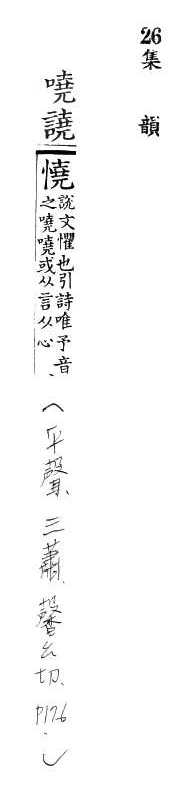 26集韻
嘵
譊
憢說文懼也引詩唯予音
之嘵嘵或从言从心
（平聲、三蕭、馨幺切、P176.）